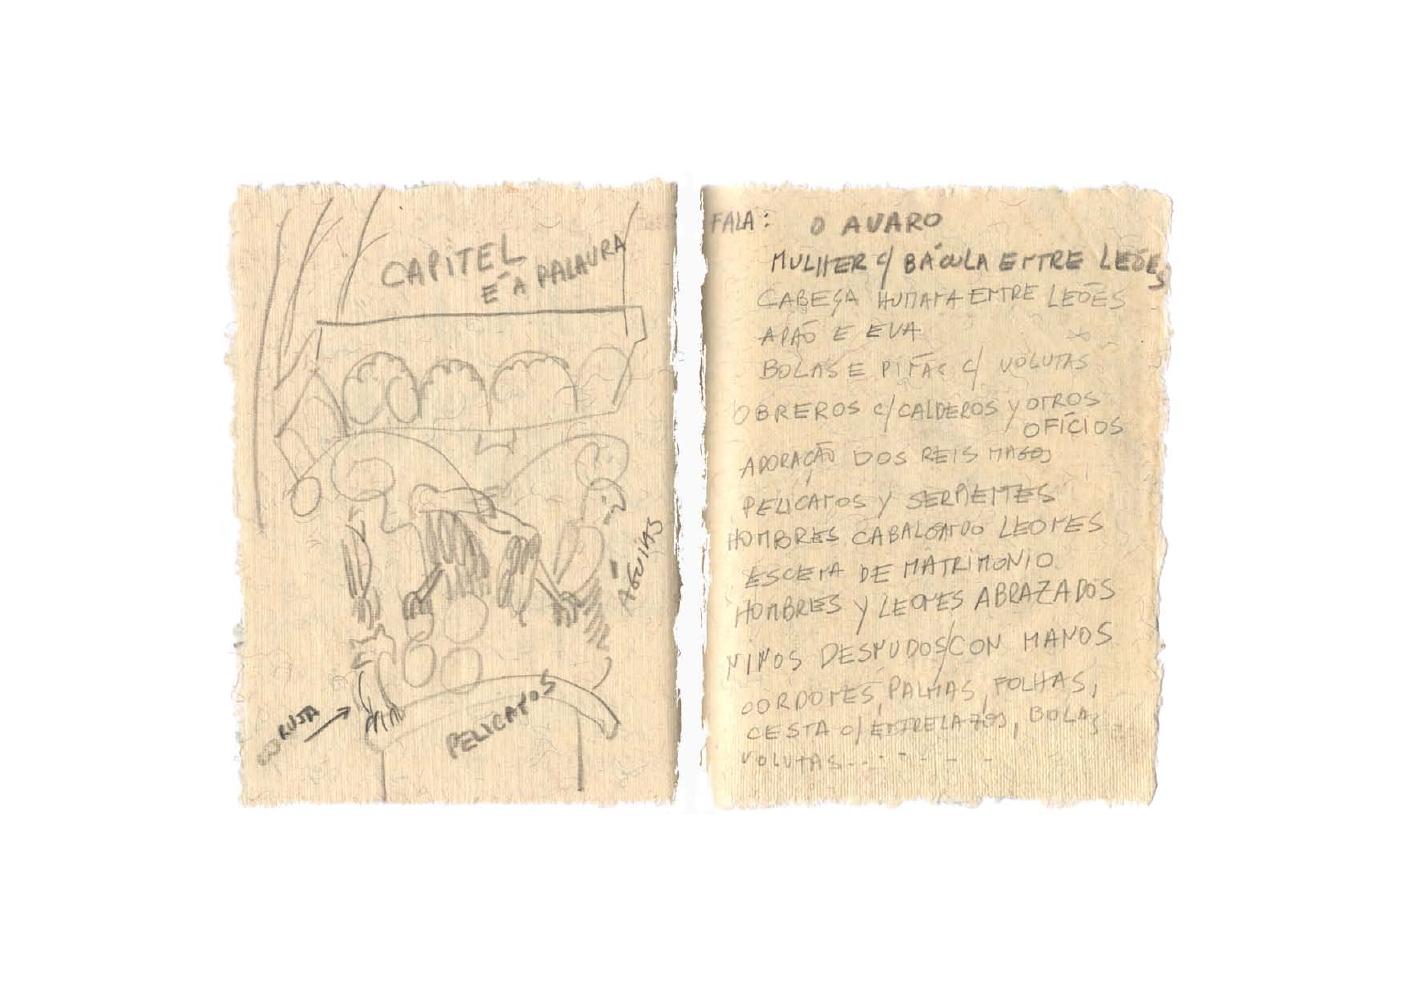 CAPITEL
É A PALAVRA
ÁGUIAS
CORUJA
PELICANOS
FALA: O AVARO
MULHER C/ BÁCULA ENTRE LEÕES
CABEÇA HUMANA ENTRE LEÕES
ADÃO E EVA
BOLAS E PIÑAS C/ VOLUTAS
OBREROS C/CALDEROS Y OTROS
OFÍCIOS
ADORAÇÃO DOS REIS MAGOS
PELICANOS Y SERPIENTES
HOMBRES CABALGANDO LEONES
ESCENA DE MATRIMONIO
HOMBRES Y LEONES ABRAZADOS
NIÑOS DESNUDOS/CON MANOS
CORDONES, PALMAS, FOLHAS,
CESTA C/ENTRELAZOS, BOLAS
VOLUTAS......